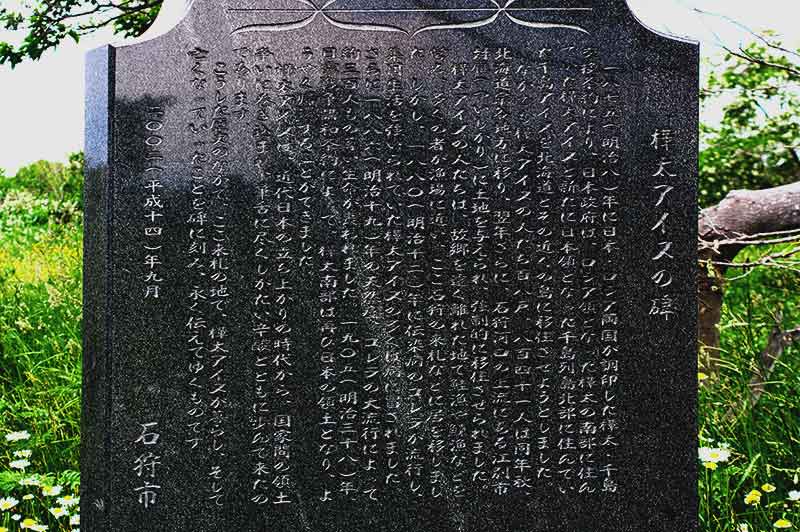 樺太アイヌの碑
一八七五(明治八)年に日本・ロシア両国が調印した樺太・千島
交換条約により、日本政府は、ロシア領となった樺太の南部に住ん
でいた樺太アイヌと新たに日本領となった千島列島北部に住んでい
た千島アイヌを北海道とその近くの島に移住させようとしました。
なかでも樺太アイヌの人たち百八戸、八百四十一人は同年秋、
北海道宗谷地方に移り、翌年さらに、石狩河口の上流にある江別市
対雁(ついしかり)に土地を与えられ、強制的に移住させられました。
樺太アイヌの人たちは、故郷を遠く離れた地で鮭漁や鰊漁などを
営み、多くの者が漁場に近い、ここ石狩の来札などに居を移しまし
た。しかし、一八八〇(明治十三)年に伝染病のコレラが流行し、
集団生活を強いられていた樺太アイヌの多くは病に冒されました。
さらに一八八六(明治十九)年の天然痘、コレラの大流行によって
約三百人もの尊い生命が失われました。一九〇五(明治三十八)年、
日露の講和条約によって、樺太南部は再び日本の領土となり、よ
うやく帰郷することができました。
樺太アイヌは、近代日本の立ち上がりの時代から、国家間の領土
争いに巻き込まれ、筆舌に尽くしがたい辛酸とともに歩んで来たの
であります。
こうした歴史のなかで、ここ来札の地で、樺太アイヌが暮らし、そして
亡くなっていったことを碑に刻み、永く伝えてゆくものです。
二〇〇二(平成十四)年九月
石狩市